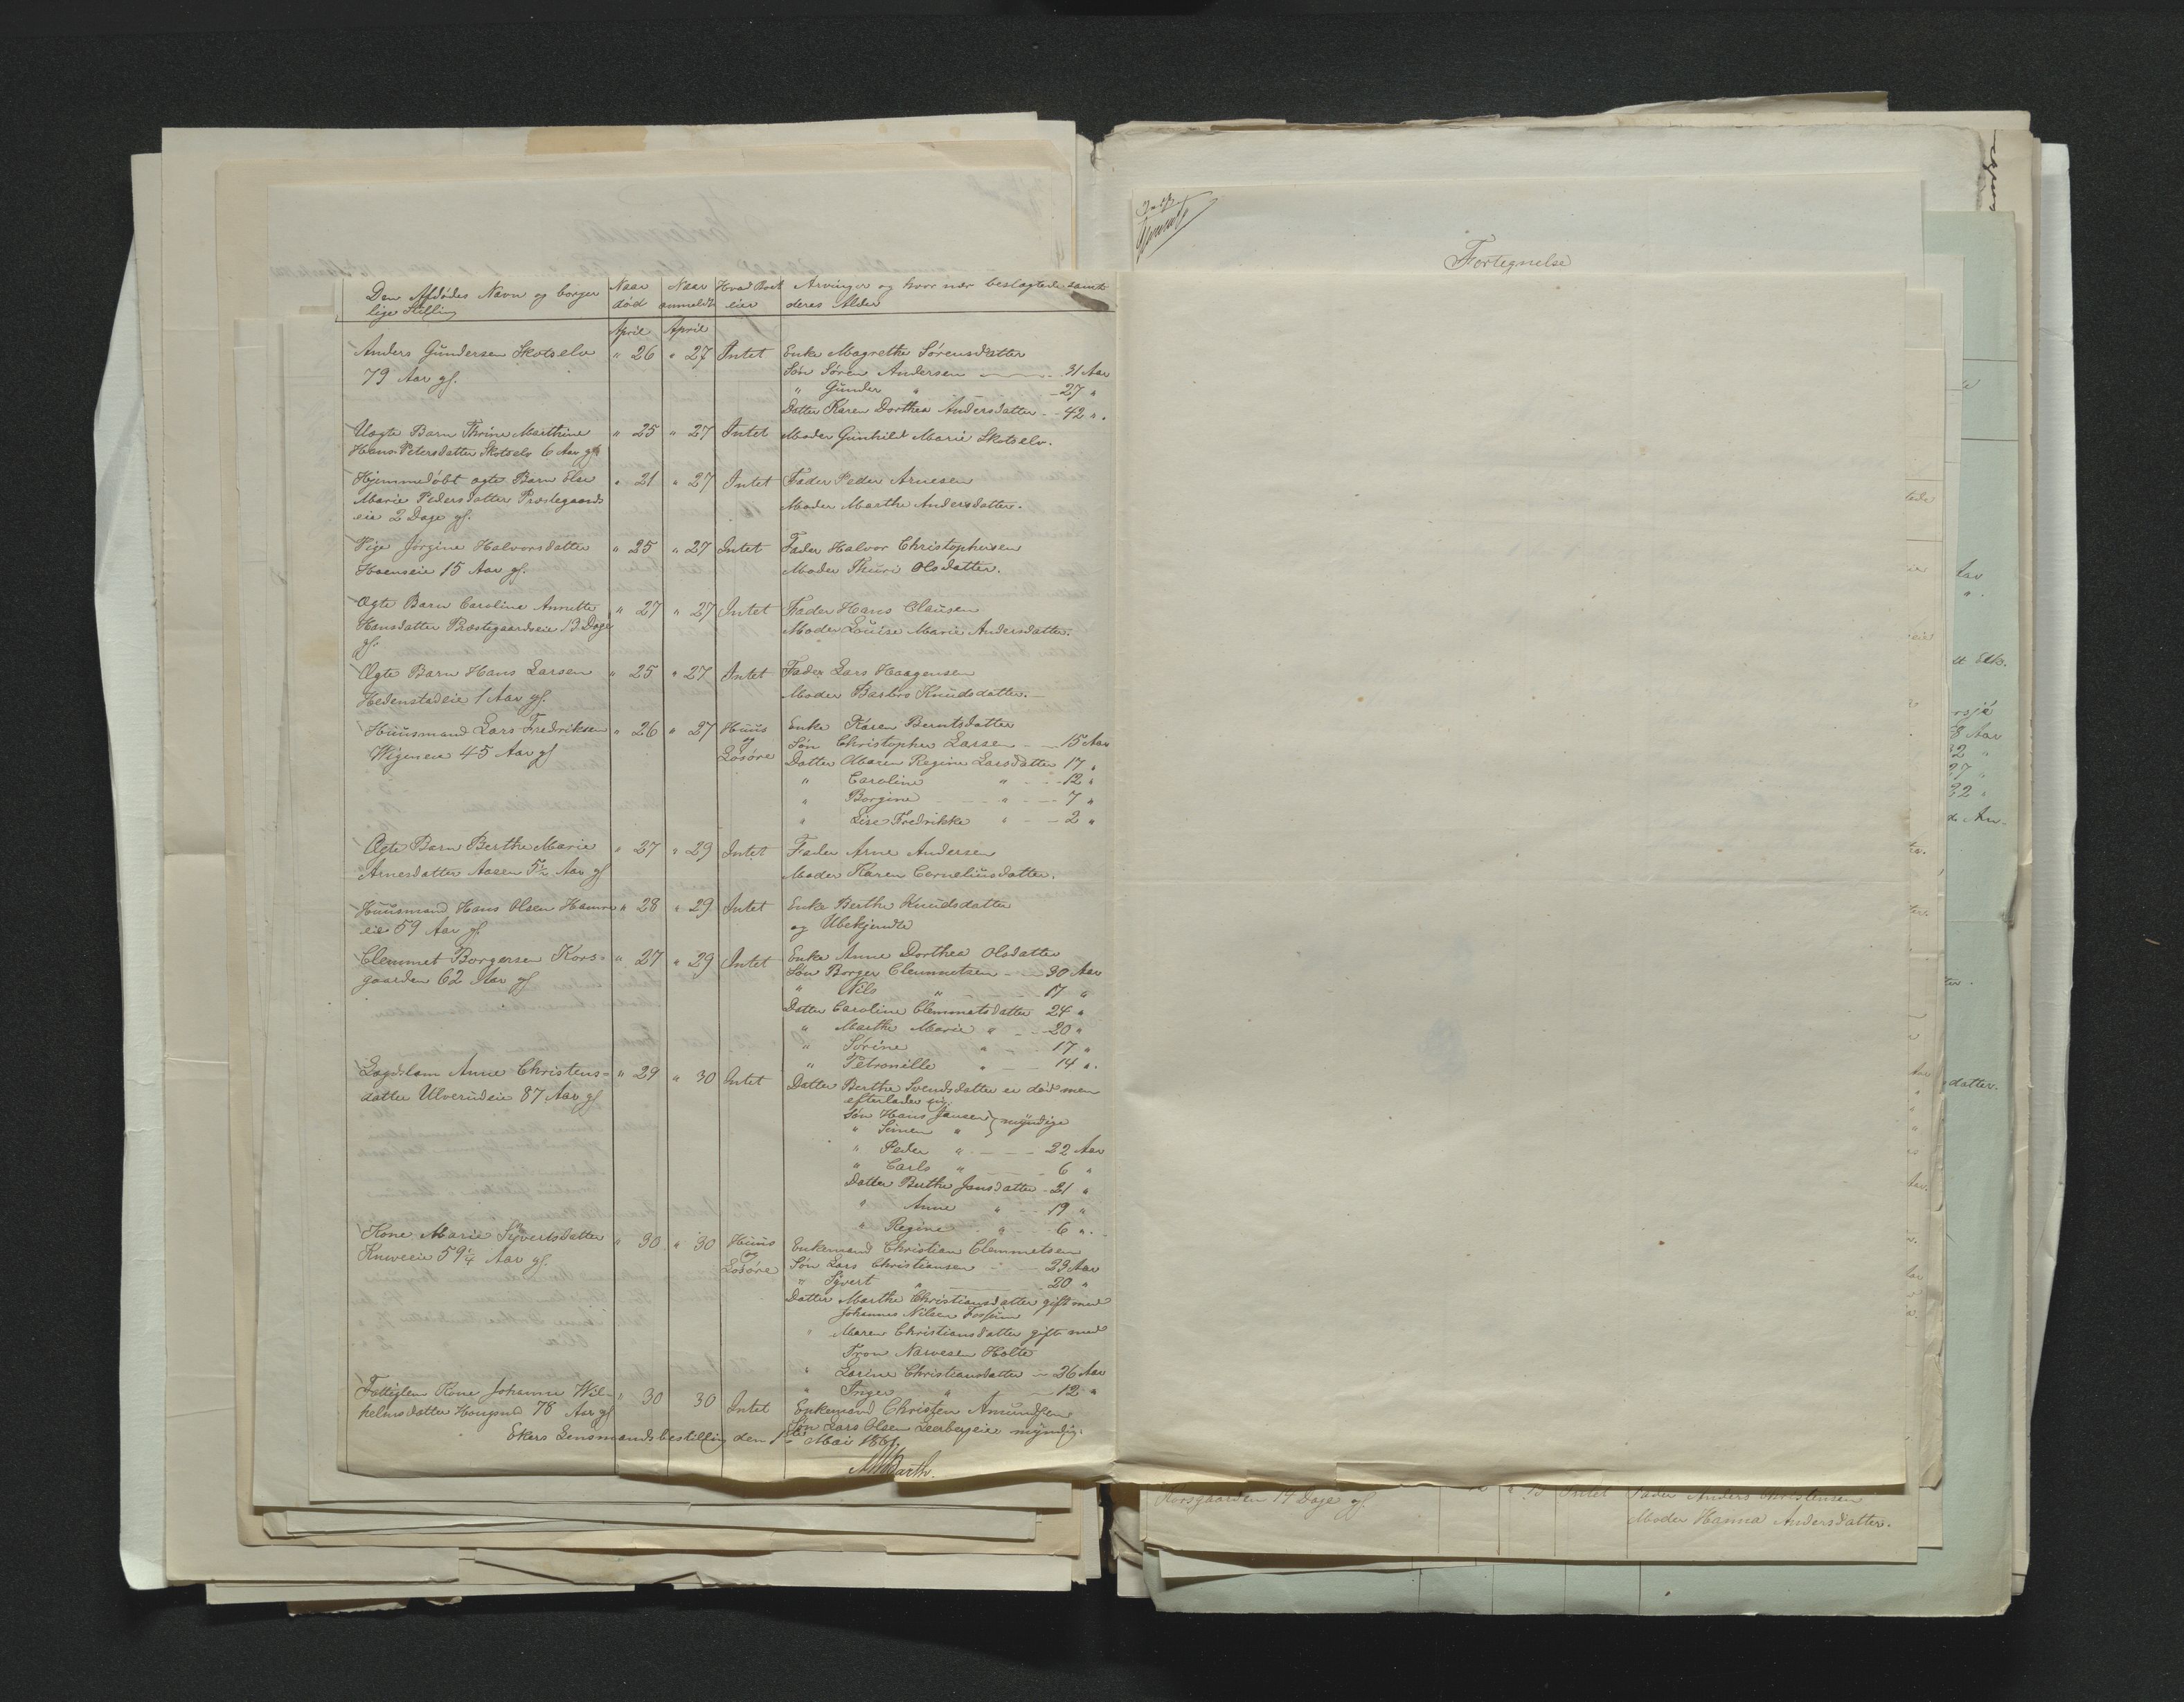 Den Afdødes Navn og borger Naar Naar Hvad Boet Arvinger og hvor nær beslægtede samt
lige Stilling død anmeldt eier deres Alder
April April
Anders Gundersen Skotselv " 26 " 27 Intet Enke Magrethe Sørensdatter
79 Aar gl. Søn Søren Andersen 31 Aar
" Gunder " 27 "
Datter Karen Dorthea Andersdatter 42 "
Uægte Barn Thrine Marthine " 25 " 27 Intet Moder Gunhild Marie Skotselv.
Hans Petersdatter Skotselv 6 Aar gl.
Hjemmedøbt ægte Barn Else " 21 " 27 Intet Fader Peder Arnesen
Marie Pedersdatter Præstegaards Moder Marthe Andersdatter.
eie 2 Dage gl.
Pige Jørgine Halvorsdatter " 25 " 27 Intet Fader Halvor Christophersen
Hoenseie 15 Aar gl. Moder Thuri Olsdatter.
Ægte Barn Caroline Annette " 27 " 27 Intet Fader Hans Clausen
Hansdatter Præstegaardseie 13 Dage Moder Louise Marie Andersdatter.
gl.
Ægte Barn Hans Larsen " 25 " 27 Intet Fader Lars Haagensen
Hedenstadeie 1 Aar gl. Moder Barbro Knudsdatter.
Huusmand Lars Fredriksen " 26 " 27 Huus Enke Karen Berntsdatter
Wigeneie 45 Aar gl og Søn Christopher Larsen 15 Aar
Løsøre Datter Maren Regine Larsdatter 17 "
" Caroline " 12 "
" Borgine " 7 "
" Lise Fredrikke " 2 "
Ægte Barn Berthe Marie " 27 " 29 Intet Fader Arne Andersen
Arnesdatter Aasen 5½ Aar gl Moder Karen Corneliusdatter.
Huusmand Hans Olsen Hamre " 28 " 29 Intet Enke Berthe Knudsdatter
eie 59 Aar gl. og Ubekjendte
Clemmet Borgersen Kors= " 27 " 29 Intet Enke Anne Dorthea Olsdatter
gaarden 62 Aar gl Søn Borger Clemmetsen 30 Aar
" Nils " 17 "
Datter Caroline Clemmetsdatter 24 "
" Marthe Marie " 20 "
" Sørine " 17 "
" Petronille " 14 "
Lægdslem Anne Christens= " 29 " 30 Intet Datter Berthe Svendsdatter er død men
datter Ulverudeie 87 Aar gl efterlader sig.
Søn Hans Jansen } myndige
" Simen "
" Peder " 22 Aar
" Carls " 6 "
Datter Berthe Jansdatter 21 "
" Anne " 19 "
" Regine " 6 "
Kone Marie Syvertsdatter " 30 " 30 Huus Enkemand Christian Clemmetsen
59¼ Aar gl. og Søn Lars Christiansen 23 Aar
Løsøre " Syvert " 20 "
Datter Marthe Christiansdatter gift med
Johannes Nilsen Fossum
" Maren Christiansdatter gift med
Tron Narvesen Holte
" Larine Christiansdatter 26 Aar
" Inger " 12 "
Fattiglem Kone Johanne Wil= " 30 30 Intet Enkemand Christen Amundsen
helmsdatter Hougsund 78 Aar gl Søn Lars Olsen Leerbergeie myndig.
Ekers Lensmandsbestilling den 1ste Mai 1861.
Barth.
Fortegnelse
Korsgaarden 14 Dage gl Intet Fader Anders Christensen
Moder Hanna Andersdatter.